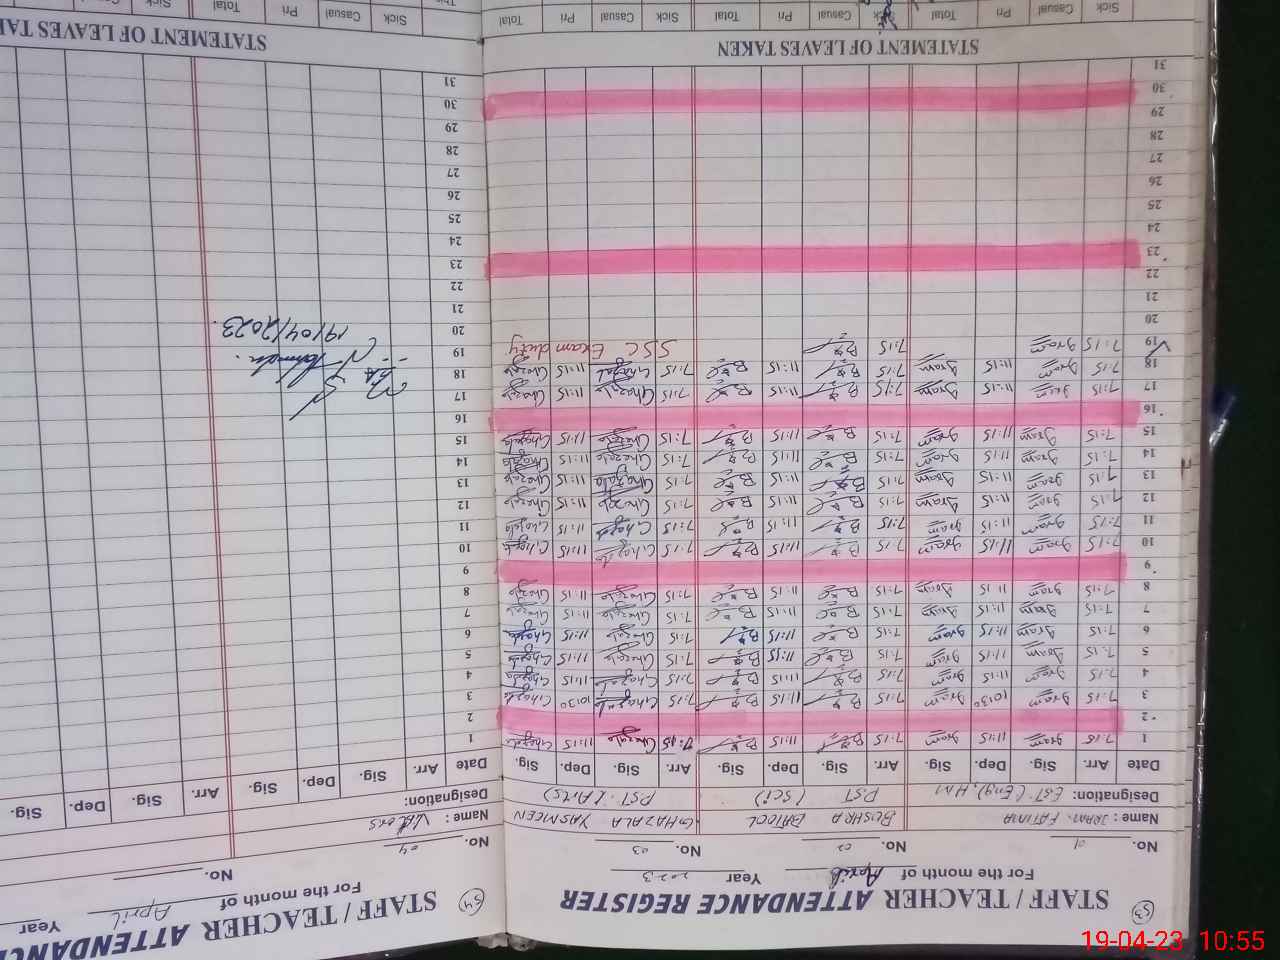 53
STAFF / TEACHER ATTENDANCE REGISTER
For the month of April Year 2023
No. 01 No. 02 No. 03
Name : IRAM FATIMA BUSHRA BATOOL GHAZALA YASMEEN
Designation: EST (Eng), HM PST (Sci) PST (Arts)
Date Arr. Sig. Dep. Sig. Arr. Sig. Dep. Sig. Arr. Sig. Dep. Sig.
1 7:15 Iram 11:15 Iram 7:15 11:15 7:15 Ghazala 11:15 Ghazala
2
3 7:15 Iram 10:30 Iram 7:15 11:15 7:15 Ghazala 10:30 Ghazala
4 7:15 Iram 11:15 Iram 7:15 11:15 7:15 Ghazala 11:15 Ghazala
5 7:15 Iram 11:15 Iram 7:15 11:15 7:15 Ghazala 11:15 Ghazala
6 7:15 Iram 11:15 Iram 7:15 11:15 7:15 Ghazala 11:15 Ghazala
7 7:15 Iram 11:15 Iram 7:15 11:15 7:15 Ghazala 11:15 Ghazala
8 7:15 Iram 11:15 Iram 7:15 11:15 7:15 Ghazala 11:15 Ghazala
9
10 7:15 Iram 11:15 Iram 7:15 11:15 7:15 Ghazala 11:15 Ghazala
11 7:15 Iram 11:15 Iram 7:15 11:15 7:15 Ghazala 11:15 Ghazala
12 7:15 Iram 11:15 Iram 7:15 11:15 7:15 Ghazala 11:15 Ghazala
13 7:15 Iram 11:15 Iram 7:15 11:15 7:15 Ghazala 11:15 Ghazala
14 7:15 Iram 11:15 Iram 7:15 11:15 7:15 Ghazala 11:15 Ghazala
15 7:15 Iram 11:15 Iram 7:15 11:15 7:15 Ghazala 11:15 Ghazala
16
17 7:15 Iram 11:15 Iram 7:15 11:15 7:15 Ghazala 11:15 Ghazala
18 7:15 Iram 11:15 Iram 7:15 11:15 7:15 Ghazala 11:15 Ghazala
19 7:15 Iram 7:15 SSC Exam duty
20
21
22
23
24
25
26
27
28
29
30
31
STATEMENT OF LEAVES TAKEN
Sick Casual Pri Total Sick Casual Pri Total Sick Casual Pri Total
54
STAFF / TEACHER ATTENDANCE
For the month of April Year
No. 04 No.
Name : Visitors
Designation:
Date Arr. Sig. Dep. Sig. Arr. Sig. Dep. Sig.
1
2
3
4
5
6
7
8
9
10
11
12
13
14
15
16
17
18
19
20
19/04/2023
21
22
23
24
25
26
27
28
29
30
31
STATEMENT OF LEAVES TAK
Sick Casual Pri Total Sick Casual Pri
19-04-23 10:55